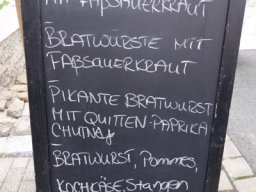 MIT FAßSAUERKRAUT
BRATWÜRSTE MIT
FAßSAUERKRAUT
PIKANTE BRATWURST
MIT QUITTEN-PAPRIKA
CHUTNEY
BRATWURST, Pommes,
KOCHKÄSE, Stangen